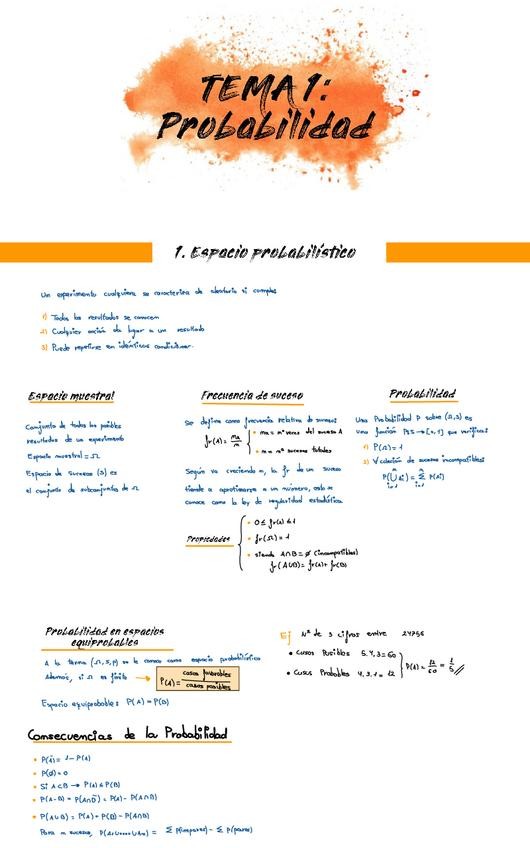 TEMA 1:
Probabilidad
1. Espacio probabilístico
Un experimento cualquiera se caracteriza de aleatorio si cumple
1) Todos los resultados se conocen
2) Cualquier acción da lugar a un resultado
3) Puede repetirse en idénticas condiciones.
Espacio muestral
Conjunto de todos los posibles
resultados de un experimento
Espacio muestral = Ω
Espacio de sucesos (S) es
el conjunto de subconjuntos de Ω
Frecuencia de suceso
Se define como frecuencia relativa de sucesos
fr(A) = ma/m
• ma = nº veces del suceso A
• m = nº sucesos totales
Según va creciendo n, la fr de un suceso
tiende a aproximarse a un número, esto se
conoce como la ley de regularidad estadística
Propiedades
• 0 ≤ fr(A) ≤ 1
• fr(Ω) = 1
• siendo A∩B = ∅ (incompatibles)
fr(A∪B) = fr(A) + fr(B)
Probabilidad
Una Probabilidad P sobre (Ω,S) es
una función P:S → [0,1] que verifica:
1) P(Ω) = 1
2) V colección de sucesos incompatibles
Probabilidad en espacios
equiprobables
A la terna (Ω,S,P) se le conoce como espacio probabilístico
Además, si Ω es finito → P(A) = casos favorables / casos posibles
Espacio equiprobable: P(A) = P(B)
Ej Nº de 3 cifras entre 24756
• Casos Posibles 5.4.3 = 60
• Casos Probables 4.3.1 = 12
P(A) = 12/60 = 1/5
Consecuencias de la Probabilidad
• P(Ā) = 1 - P(A)
• P(∅) = 0
• Si A⊂B → P(A) ≤ P(B)
• P(A-B) = P(A∩B̄) = P(A) - P(A∩B)
• P(A∪B) = P(A) + P(B) - P(A∩B)
Para n sucesos, P(A₁∪...∪An) = Σ P(impares) - Σ P(pares)